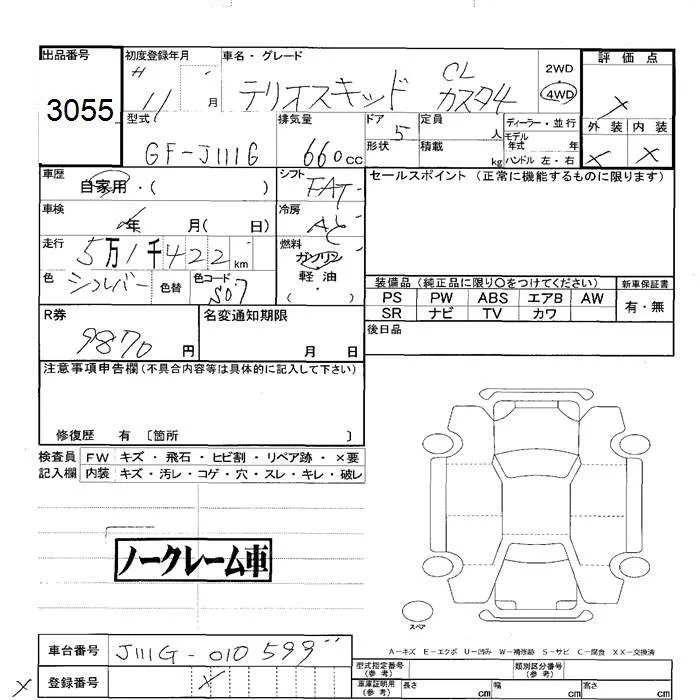 出品番号
3055
初度登録年月
H 11 月
車名・グレード
テリオスキッド CL カスタム
2WD
4WD
評価点
X
外装 内装
X X
型式
GF-J111G
排気量
660cc
ドア
5
形状
定員
人
積載
kg
ディーラー・並行
モデル
年式 年
ハンドル 左・右
車歴
自家用・( )
シフト
FAT
車検
年 月( 日)
冷房
AC
走行
5万1千422km
燃料
ガソリン
軽油
・
( )
色
シルバー
色替
色コード
S07
セールスポイント(正常に機能するものに限ります)
装備品(純正品に限り○をつけてください)
新車保証書
PS PW ABS エアB AW
SR ナビ TV カワ
有・無
後日品
R券
9870円
名変通知期限
月 日
注意事項申告欄(不具合内容等は具体的に記入して下さい)
修復歴 有 〔箇所 〕
検査員 FW キズ・飛石・ヒビ割・リペア跡・×要
記入欄 内装 キズ・汚レ・コゲ・穴・スレ・キレ・破レ
ノークレーム車
スペア
A-キズ E-エクボ U-凹み W-補修跡 S-サビ C-腐食 XX-交換済
車台番号
J111G-010599
登録番号
X
X
型式指定番号
(参考)
類別区分番号
(参考)
車庫証明用
(参考)
長さ cm
幅 cm
高さ cm